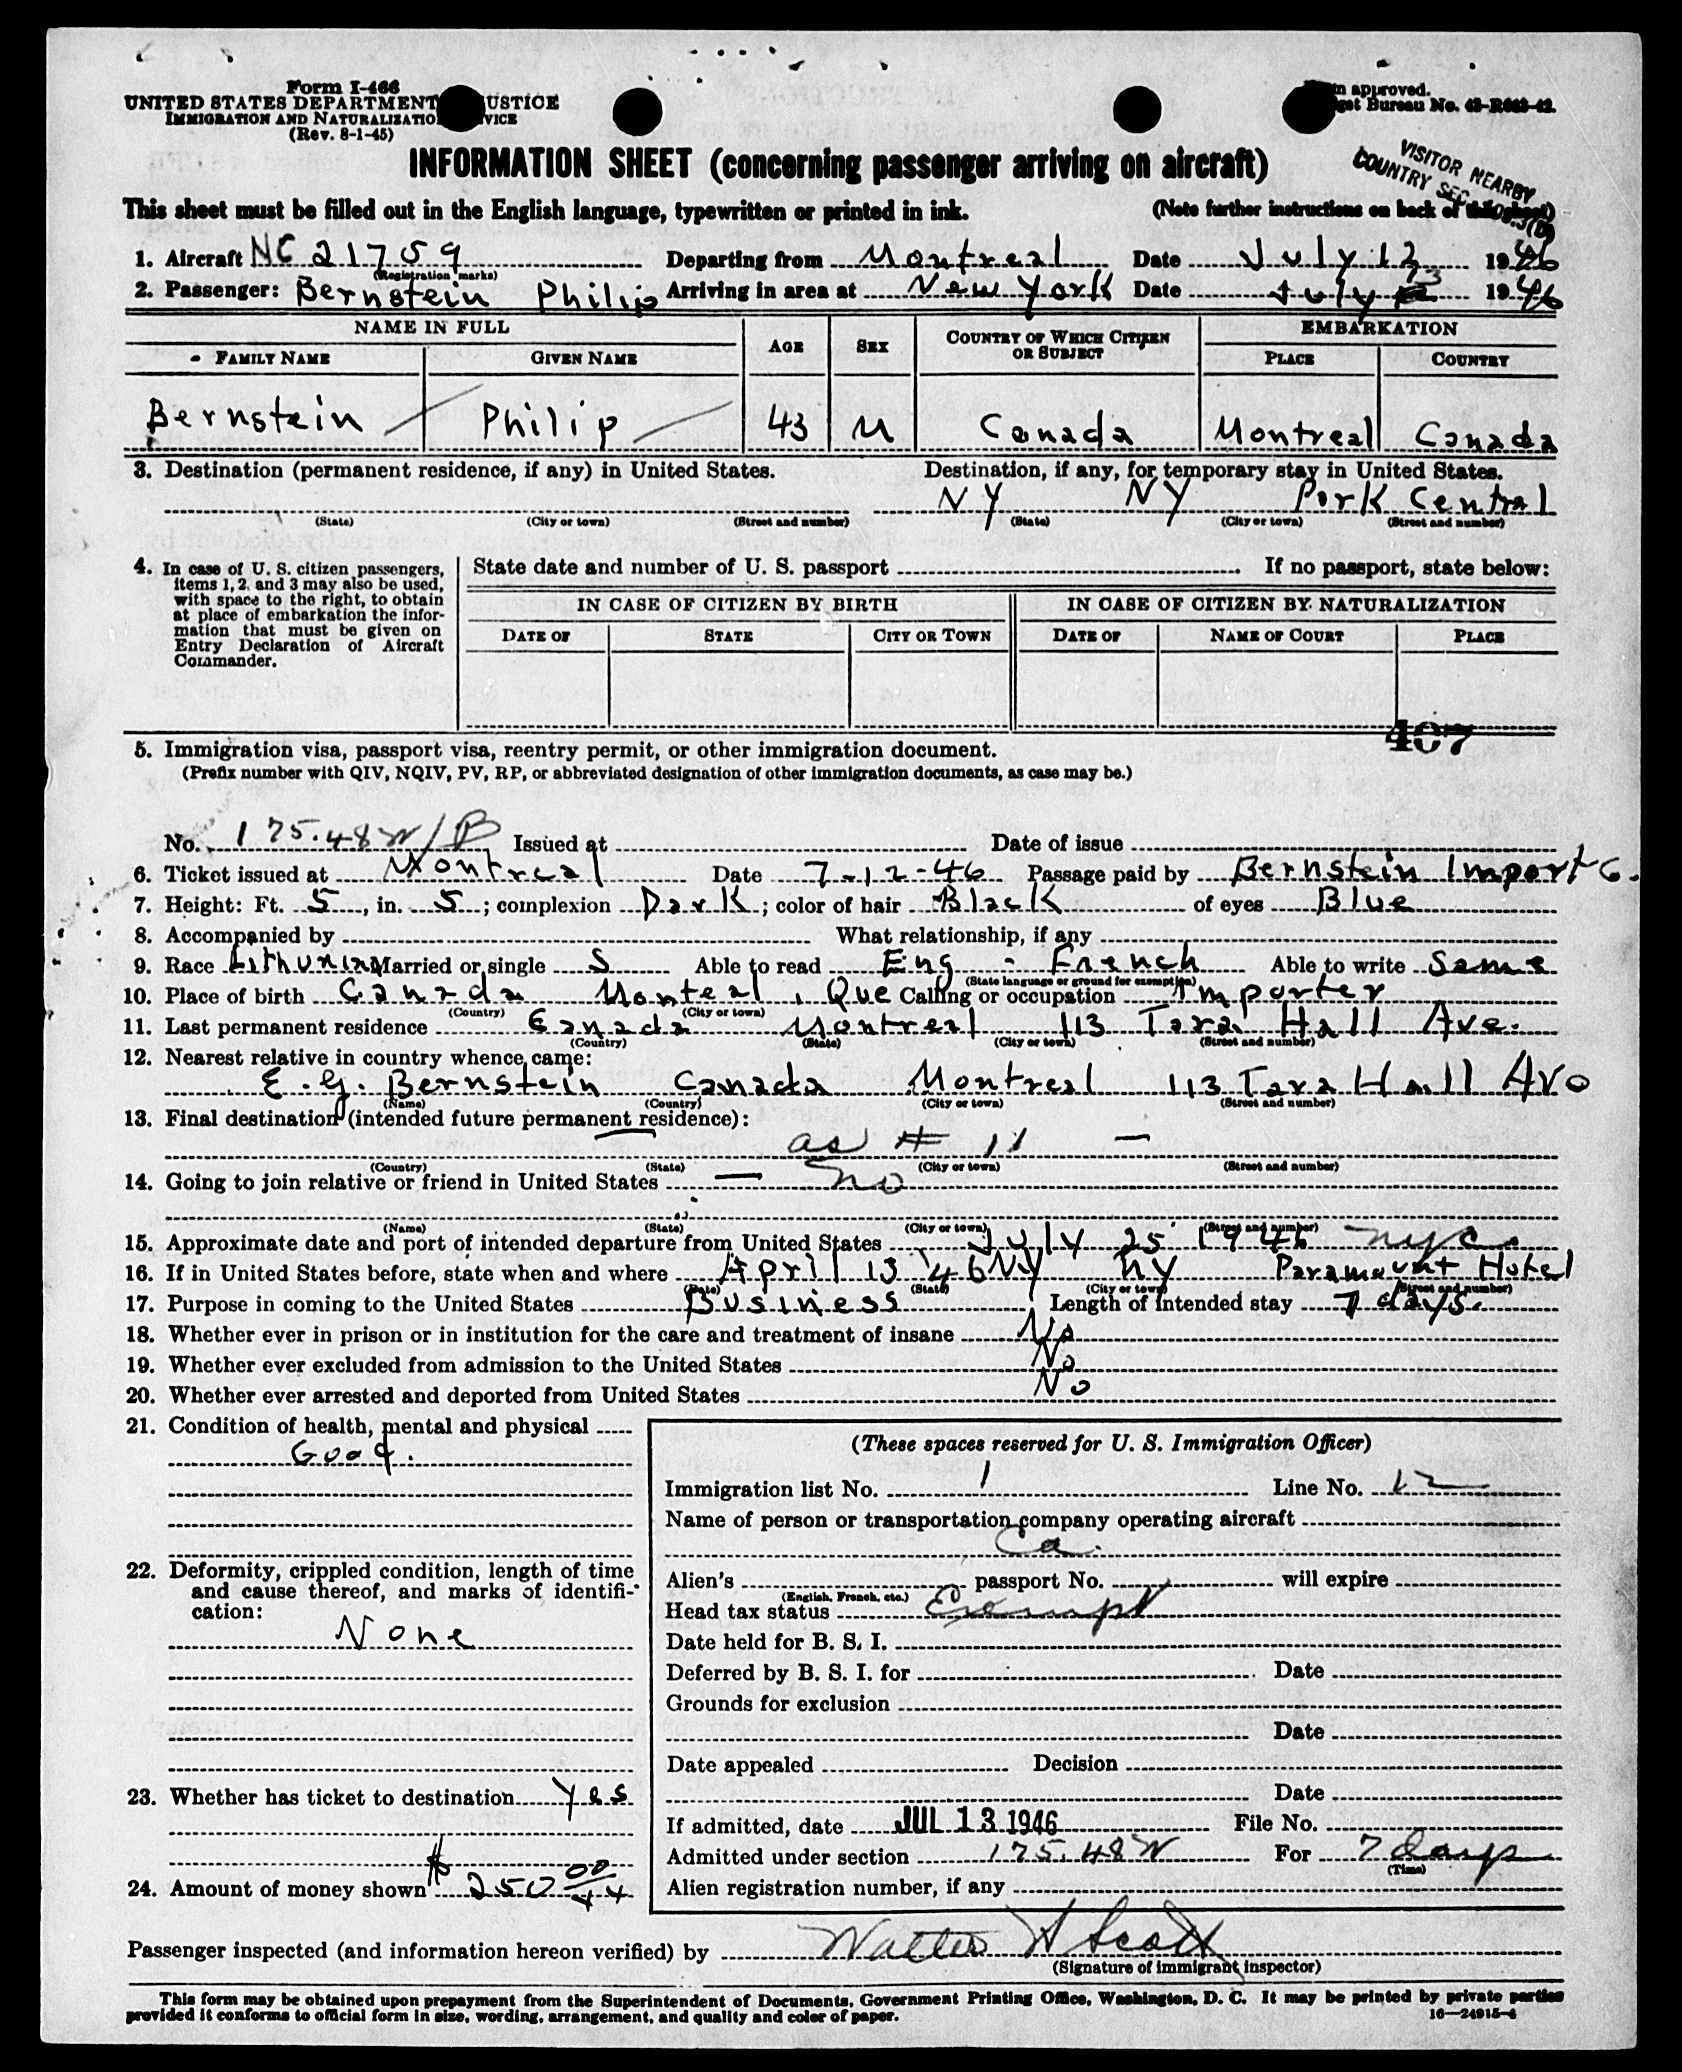 Form I-466
UNITED STATES DEPARTMENT USTICE
IMMIGRATION AND NATURALIZATIO VICE
(Rev. 8-1-45)
m approved.
get Bureau No. 43-R083-42.
INFORMATION SHEET (concerning passenger arriving on aircraft)
VISITOR NEARBY
COUNTRY SEC.
This sheet must be filled out in the English language, typewritten or printed in ink. (Note further instructions on back of this sheet)
1. Aircraft NC 21759 Departing from Montreal Date July 12 1946
(Registration marks)
2. Passenger: Bernstein Philip Arriving in area at New York Date July 13 1946
NAME IN FULL AGE SEX COUNTRY OF WHICH CITIZEN OR SUBJECT EMBARKATION
FAMILY NAME GIVEN NAME PLACE COUNTRY
Bernstein Philip 43 M Canada Montreal Canada
3. Destination (permanent residence, if any) in United States. Destination, if any, for temporary stay in United States.
NY NY Park Central
(State) (City or town) (Street and number) (State) (City or town) (Street and number)
4. In case of U. S. citizen passengers, items 1, 2, and 3 may also be used, with space to the right, to obtain at place of embarkation the information that must be given on Entry Declaration of Aircraft Commander.
State date and number of U. S. passport If no passport, state below:
IN CASE OF CITIZEN BY BIRTH IN CASE OF CITIZEN BY NATURALIZATION
DATE OF STATE CITY OR TOWN DATE OF NAME OF COURT PLACE
407
5. Immigration visa, passport visa, reentry permit, or other immigration document.
(Prefix number with QIV, NQIV, PV, RP, or abbreviated designation of other immigration documents, as case may be.)
No. 175.48 W/B Issued at Date of issue
6. Ticket issued at Montreal Date 7-12-46 Passage paid by Bernstein Import Co.
7. Height: Ft. 5, in. 5; complexion Dark; color of hair Black of eyes Blue
8. Accompanied by What relationship, if any
9. Race Lithunian Married or single S Able to read Eng - French Able to write Same
(State language or ground for exemption)
10. Place of birth Canada Monteal, Que Calling or occupation Importer
(Country) (City or town)
11. Last permanent residence Canada Montreal 113 Tara Hall Ave.
(Country) (State) (City or town) (Street and number)
12. Nearest relative in country whence came:
E. G. Bernstein Canada Montreal 113 Tara Hall Ave
(Name) (Country) (City or town) (Street and number)
13. Final destination (intended future permanent residence):
as # 11 —
(Country) (State) (City or town) (Street and number)
14. Going to join relative or friend in United States — no
(Name) (State) (City or town) (Street and number)
15. Approximate date and port of intended departure from United States July 25 1946 nyc
16. If in United States before, state when and where April 13 '46 NY NY Paramount Hotel
(Date) (State) (City or town) (Street and number)
17. Purpose in coming to the United States Business Length of intended stay 7 days.
18. Whether ever in prison or in institution for the care and treatment of insane No
19. Whether ever excluded from admission to the United States No
20. Whether ever arrested and deported from United States No
21. Condition of health, mental and physical
Good.
22. Deformity, crippled condition, length of time and cause thereof, and marks of identification:
None
23. Whether has ticket to destination Yes
24. Amount of money shown $250 00
(These spaces reserved for U. S. Immigration Officer)
Immigration list No. 1 Line No. 12
Name of person or transportation company operating aircraft
Ca.
Alien's passport No. will expire
(English, French, etc.)
Head tax status Exempt
Date held for B. S. I.
Deferred by B. S. I. for Date
Grounds for exclusion
Date
Date appealed Decision
Date
If admitted, date JUL 13 1946 File No.
Admitted under section 175.48 W For 7 days
(Time)
Alien registration number, if any
Passenger inspected (and information hereon verified) by Walter H Scott
(Signature of immigrant inspector)
This form may be obtained upon prepayment from the Superintendent of Documents, Government Printing Office, Washington, D. C. It may be printed by private parties
provided it conforms to official form in size, wording, arrangement, and quality and color of paper. 16—24915-4